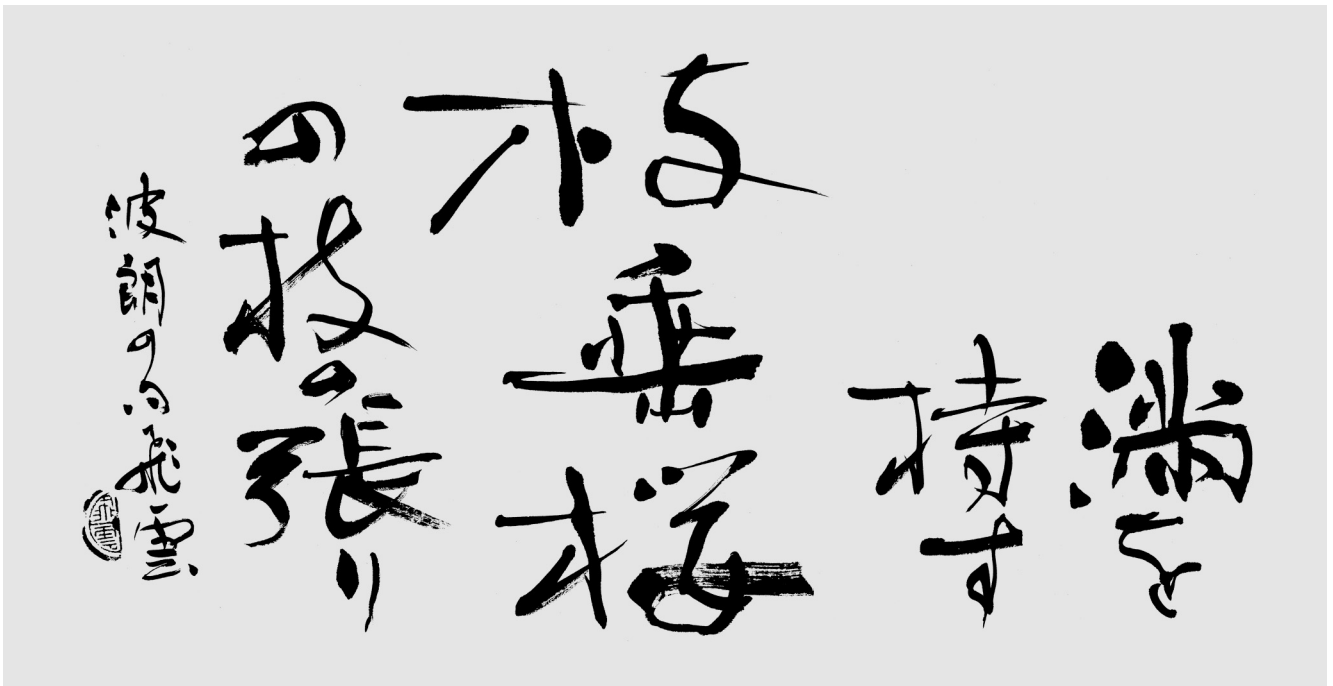 満を
持す
枝垂桜
の枝の張り
波朗の句飛雲